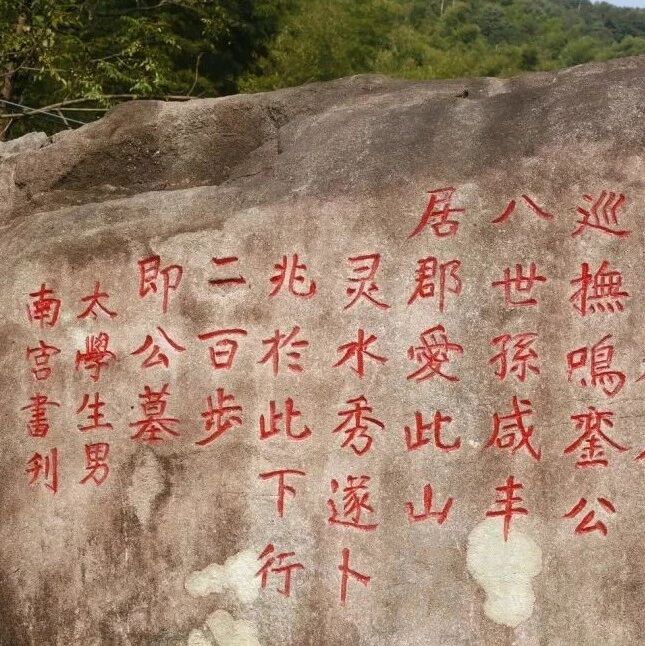 巡撫鳴鑾公
八世孫咸丰
居郡愛此山
灵水秀遂卜
兆於此下行
二百步
即公墓
太學生男
南宫書刋